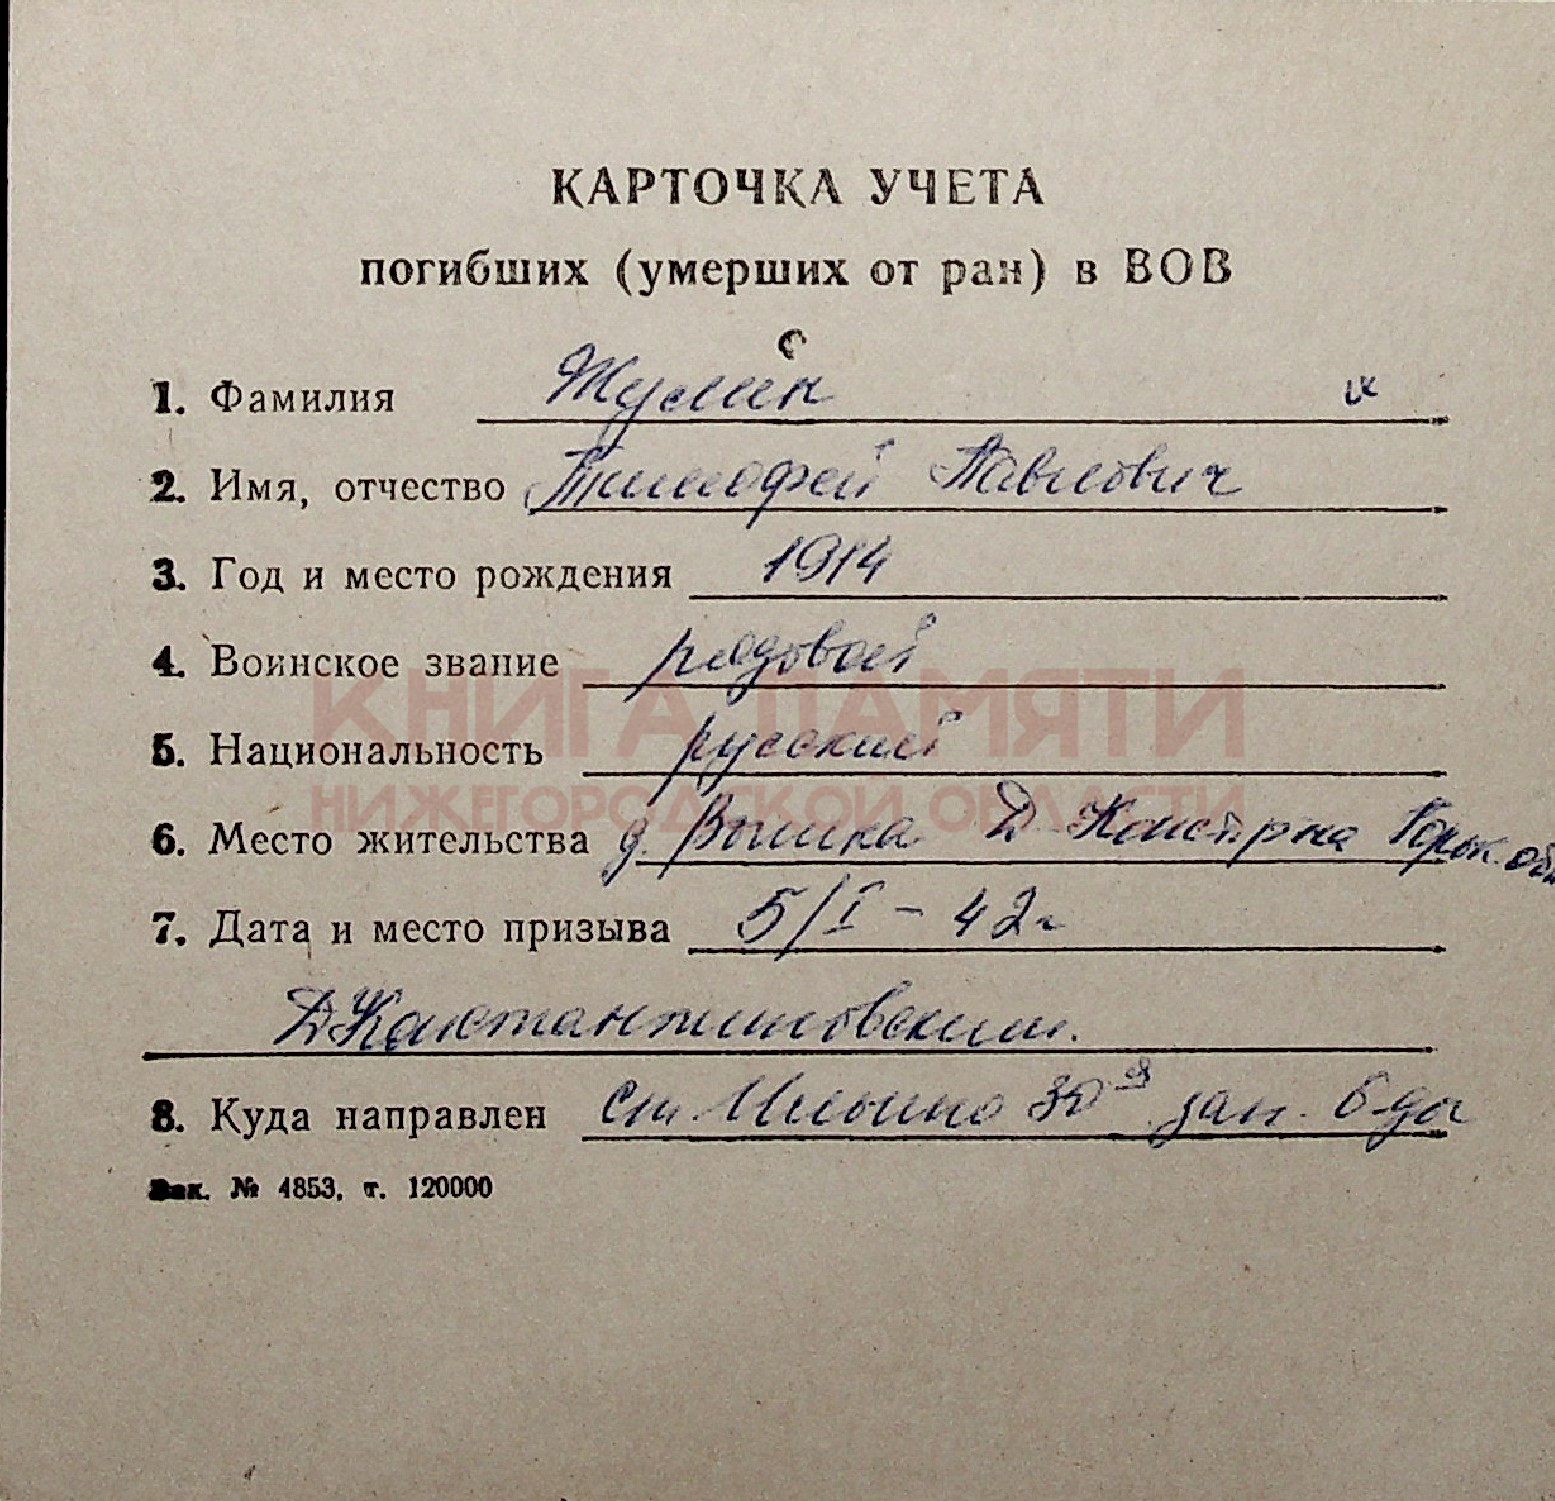 КАРТОЧКА УЧЕТА
погибших (умерших от ран) в ВОВ
1. Фамилия Жулин
2. Имя, отчество Тимофей Павлович
3. Год и место рождения 1914
4. Воинское звание рядовой
5. Национальность русский
КНИГА ПАМЯТИ
НИЖЕГОРОДСКОЙ ОБЛАСТИ
6. Место жительства д. Вышка Д-Конст. р-на Горьк. обл
7. Дата и место призыва 5/I - 42г
ДКонстантиновским.
8. Куда направлен ст. Ильино 30 зап. б-да
Зак. № 4853, т. 120000